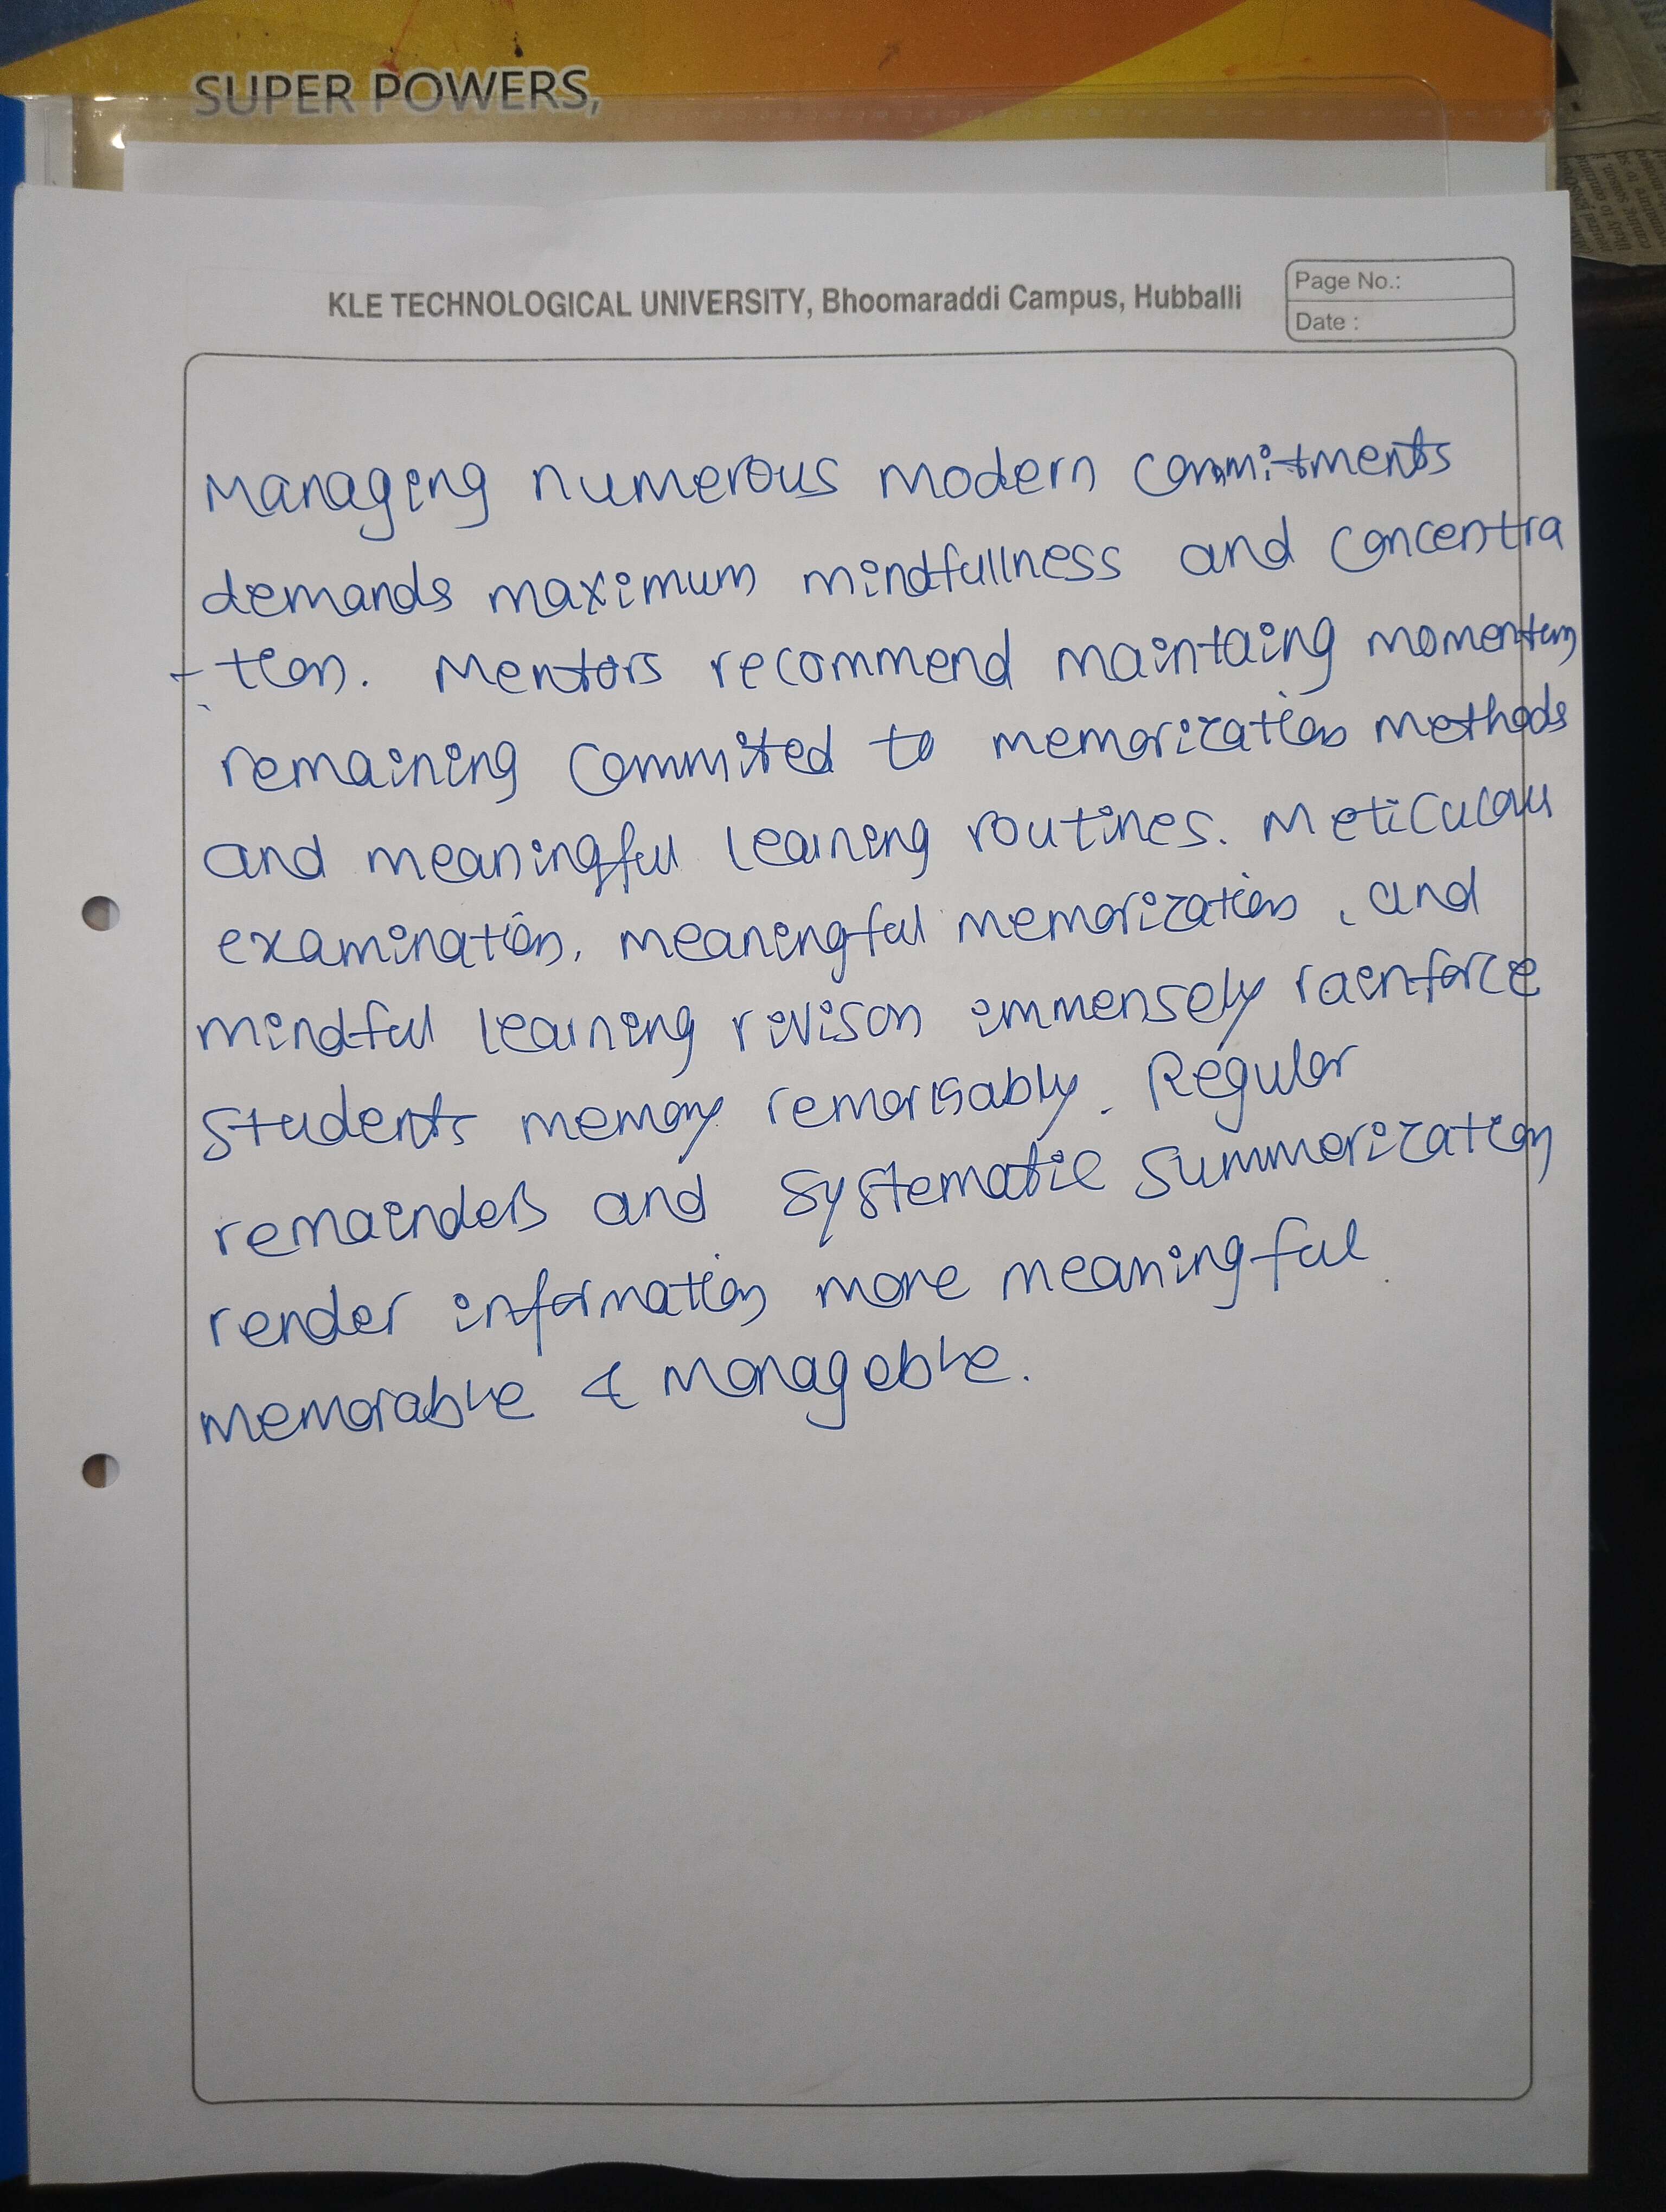 SUPER POWERS,
KLE TECHNOLOGICAL UNIVERSITY, Bhoomaraddi Campus, Hubballi
Page No.:
Date :
Managing numerous modern commitments
demands maximum mindfullness and concentra
-tion. Mentors recommend maintaing momentum
remaining commited to memorization methods
and meaningful learning routines. Meticulou
examination, meaningful memorization, and
mindful learning rivison immensely rainforce
students memory remarkably. Regular
remainders and systematic summorization
render information more meaningful
memorable & manageable.